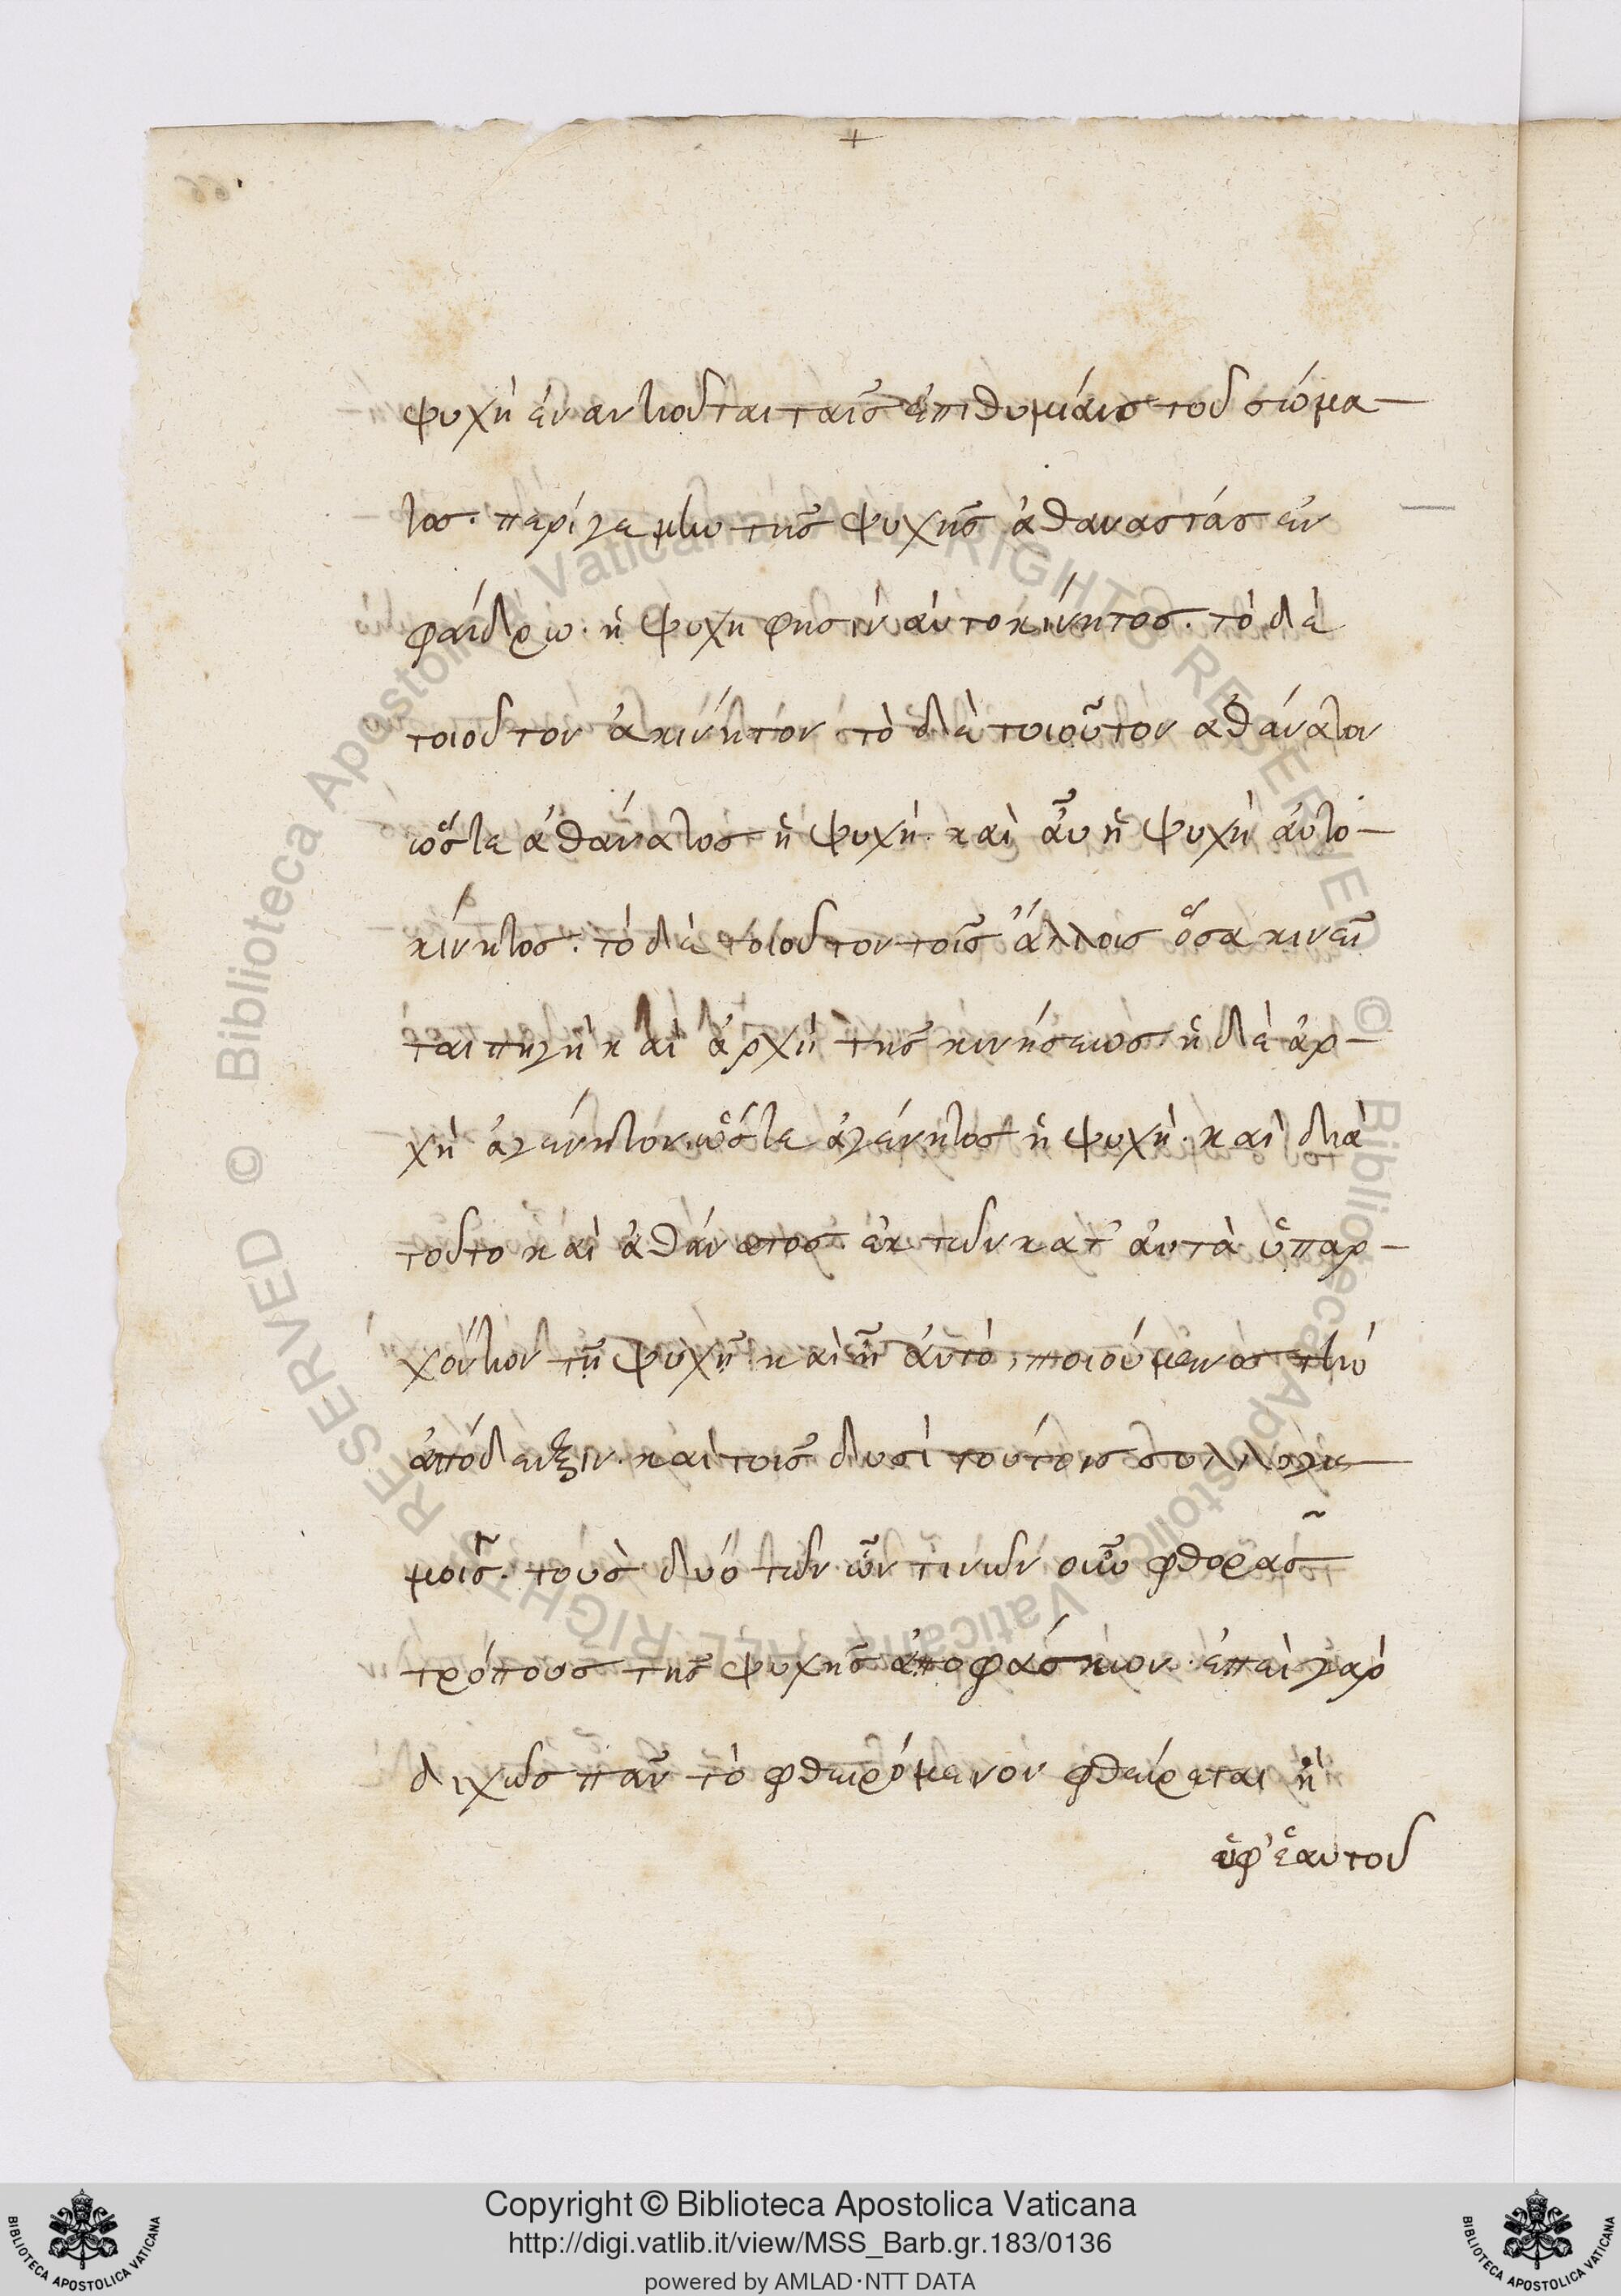 +
ψυχὴ ἐναντιοῦται ταῖς ἐπιθυμίαις τοῦ σώμα-
τος. περί γε μὴν τῆς ψυχῆς ἀθανασίας ἐν
φαίδρω. ἡ ψυχη φησὶν αὐτοκίνητος. τὸ δὲ
τοιοῦτον ἀκινήτον τὸ δὲ τοιοῦτον αθάνατον
ὥστε ἀθάνατος ἡ ψυχή. καὶ αὖ ἡ ψυχὴ αὐτο-
κίνητος. τὸ δὲ τοιοῦτον τοῖς ἄλλοις ὅσα κινεῖ
ται πηγὴ καὶ ἀρχὴ τῆς κινήσεως. ἡ δὲ ἀρ-
χὴ ἀγένητον. ὥστε ἀγένητος ἡ ψυχὴ. καὶ διὰ
τοῦτο καὶ ἀθάνατος. ἐκ τῶν κατ' αὐτὰ ὑπαρ-
χόντων τῇ ψυχῇ. καὶ ᾗ αὐτὸ, ποιούμενος τὴν
ἀπόδειξιν. καὶ τοῖς δυσὶ τούτοις συλλογισ-
μοῖς. τοὺς δυό τῶν ὧν τινῶν οὖν φθορᾶς
τρόπους τῆς ψυχῆς ἀποφάσκων. ἐπεὶ γὰρ
διχῶς πᾶν τὸ φθειρόμενον φθείρεται ἢ
ὑφ' ἑαυτοῦ
Copyright © Biblioteca Apostolica Vaticana
http://digi.vatlib.it/view/MSS_Barb.gr.183/0136
powered by AMLAD·NTT DATA
BIBLIOTECA APOSTOLICA VATICANA
BIBLIOTECA APOSTOLICA VATICANA
© Biblioteca Apostolica Vaticana ALL RIGHTS RESERVED
© Biblioteca Apostolica Vaticana ALL RIGHTS RESERVED